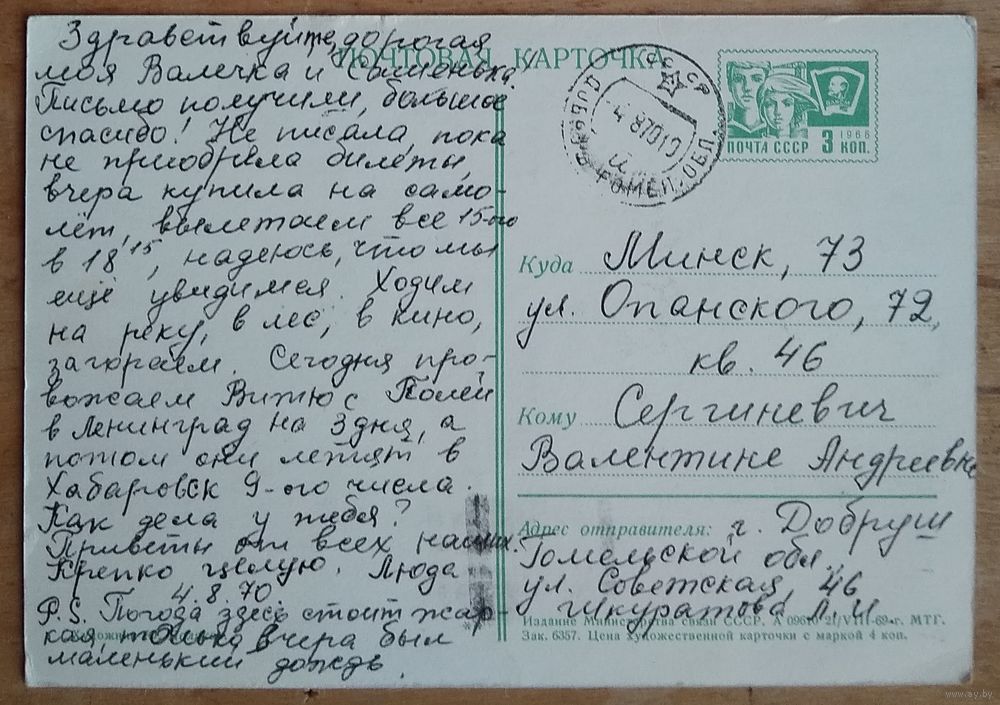 Здравствуйте, дорогая
моя Валечка и Сашенька!
Письмо получили, большое
спасибо! Не писала, пока
не приобрела билеты,
вчера купила на само-
лёт, вылетаем все 15-ого
в 18 15, надеюсь, что мы
ещё увидимся. Ходим
на реку, в лес, в кино,
загораем. Сегодня про-
вожаем Витю с Полей
в Ленинград на 3 дня, а
потом они летят в
Хабаровск 9-ого числа.
Как дела у тебя?
Приветы от всех наших.
Крепко целую. Люда
4.8.70.
P.S. Погода здесь стоит жар-
кая, только вчера был
маленький дождь.
ПОЧТОВАЯ КАРТОЧКА
ССР
-4.8.70 19
ГОМЕЛ. ОБЛ.
1966
ПОЧТА СССР 3 КОП.
Куда Минск, 73
ул. Опанского, 72,
кв. 46
Кому Сергиневич
Валентине Андреевне
Адрес отправителя: г. Добруш
Гомельской обл.,
ул. Советская, 46
Шкуратова Л.И.
Издание Министерства связи СССР. А 09610 21/VIII-69 г. МТГ.
Зак. 6357. Цена художественной карточки с маркой 4 коп.
www.ay.by